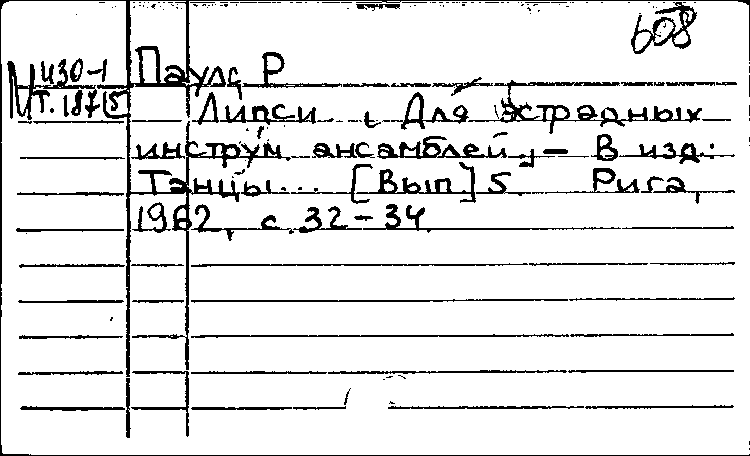 608
М И30-1 Паулс Р
Т.187/5 Липси. Для эстрадных
инструм. ансамблей. — В изд.:
Танцы... [Вып.] 5. Рига,
1962, с. 32-34.